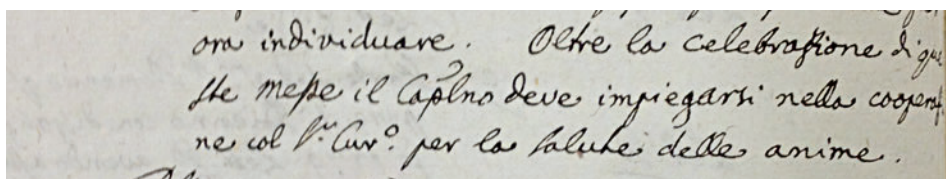 ora individuare. Oltre la celebrazione di que
ste messe il Caplno deve impiegarsi nella cooperaz.
ne col Sr. Curo. per la salute delle anime.